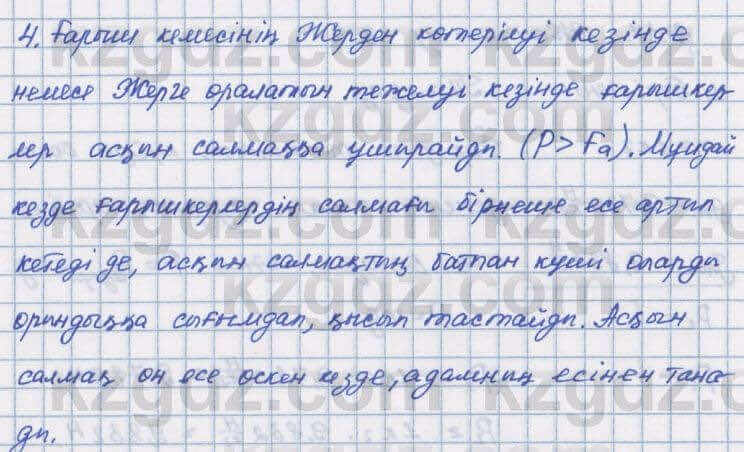 4. Ғарыш кемесінің Жерден көтерілуі кезінде
немесе Жерге оралатын тежелуі кезінде ғарышкер-
лер асқын салмаққа ұшырайды. (P > Fа). Мұндай
кезде ғарышкерлердің салмағы бірнеше есе артып
кетеді де, асқын салмақтың батпан күші оларды
орындыққа сығымдап, қысып тастайды. Асқын
салмақ он есе өскен кезде, адамның есінен тана-
ды.
kzgdz.com